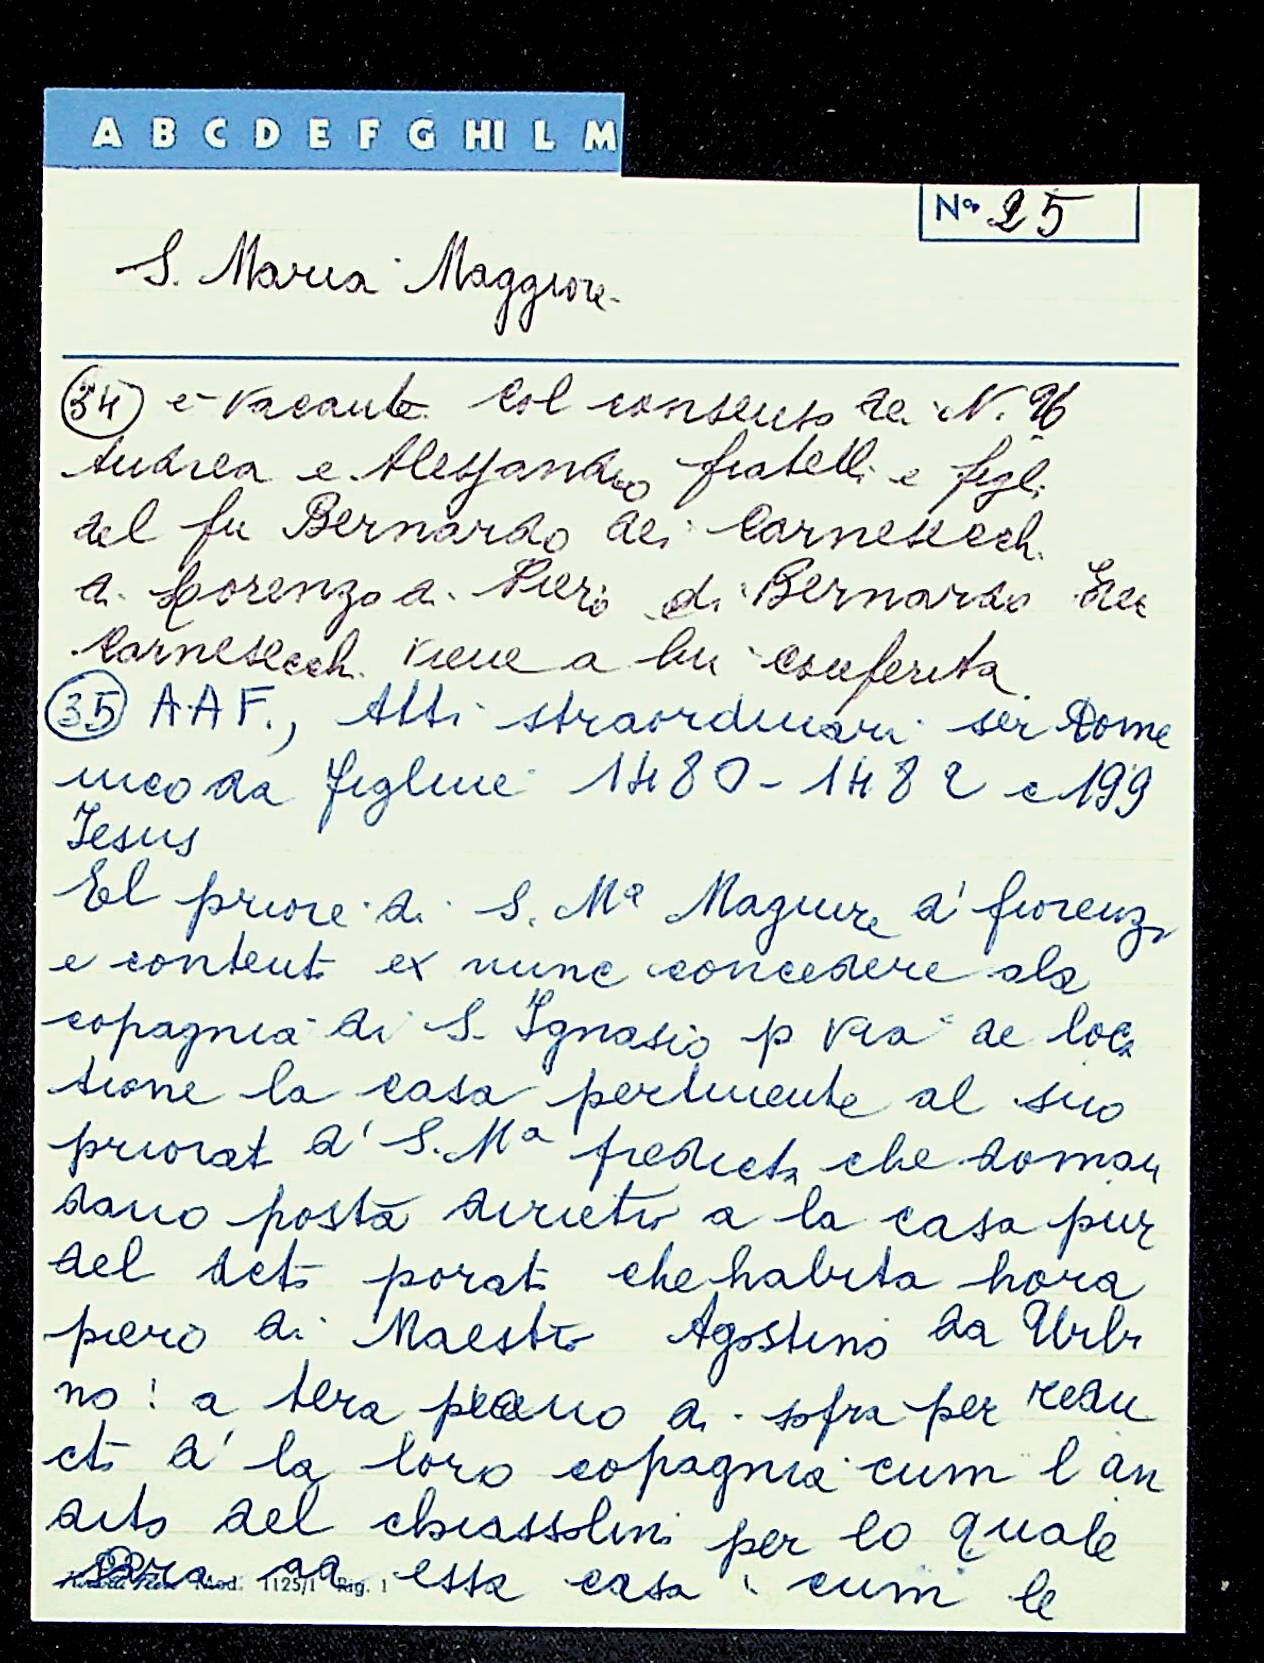 A B C D E F G HI L M
No. 25
S. Maria Maggiore
34 e vacante col consenso dei N. H
Andrea e Alessandro fratelli e figli
del fu Bernardo dei Carnesecchi
a Lorenzo di Piero di Bernardo
Carnesecchi viene a lui conferita
35 A.A.F., Atti straordinari ser Dome
nico da figline 1480-1482 c 199
Jesus
El priore di S. Mª Magiure d' fiorenz
e content ex nunc concedere ala
copagnia di S. Ignasio p via de loca
tione la casa pertinente al suo
priorat d' S. Mª predicta che doman
dano posta dirieto a la casa pur
del dcto porato che habita hora
piero di Maestro Agostino da Urbi
no: a tera piano di sopra per redu
cti d' la loro copagnia cum l an
dito del chiassolini per lo quale
essa casa cum le
Mod. 1125/1 Rig. 1